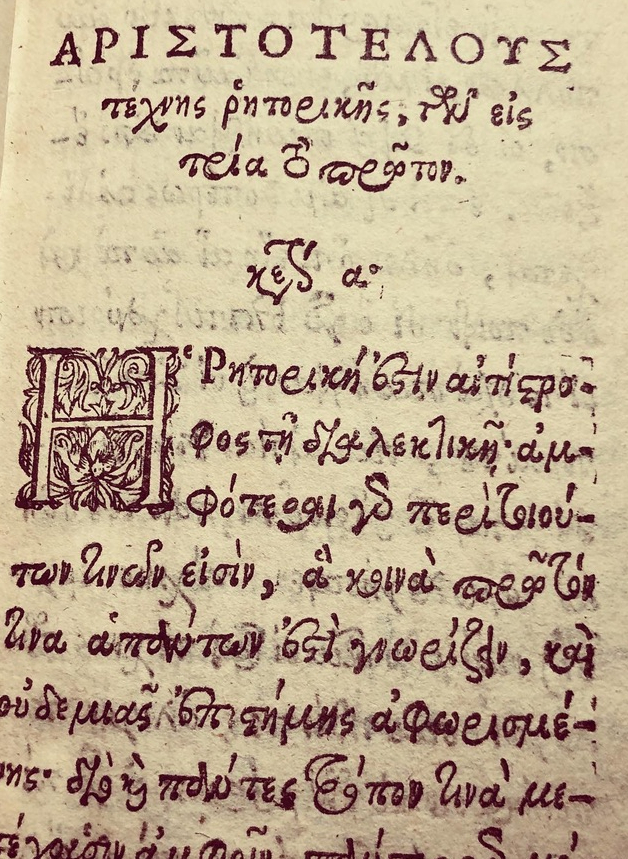 ΑΡΙΣΤΟΤΕΛΟΥΣ
τέχνης ῥητορικῆς, τῶν εἰς
τρία τὸ πρῶτον.
κεφ αʹ
Ἡ Ῥητορική ἐστιν ἀντίστρο-
φος τῇ διαλεκτικῇ· ἀμ-
φότεραι γὸ περὶ τοιού-
των τινῶν εἰσὶν, ἃ κοινὰ πρῶ τόν
τινα ἁπάντων ἐστὶ γνωρίζειν, καὶ
οὐδεμιᾶς ἐπιστήμης ἀφωρισμέ-
νης· διὸ καὶ πάντες τρόπον τινὰ με-
τέχουσιν ἀμφοῖν